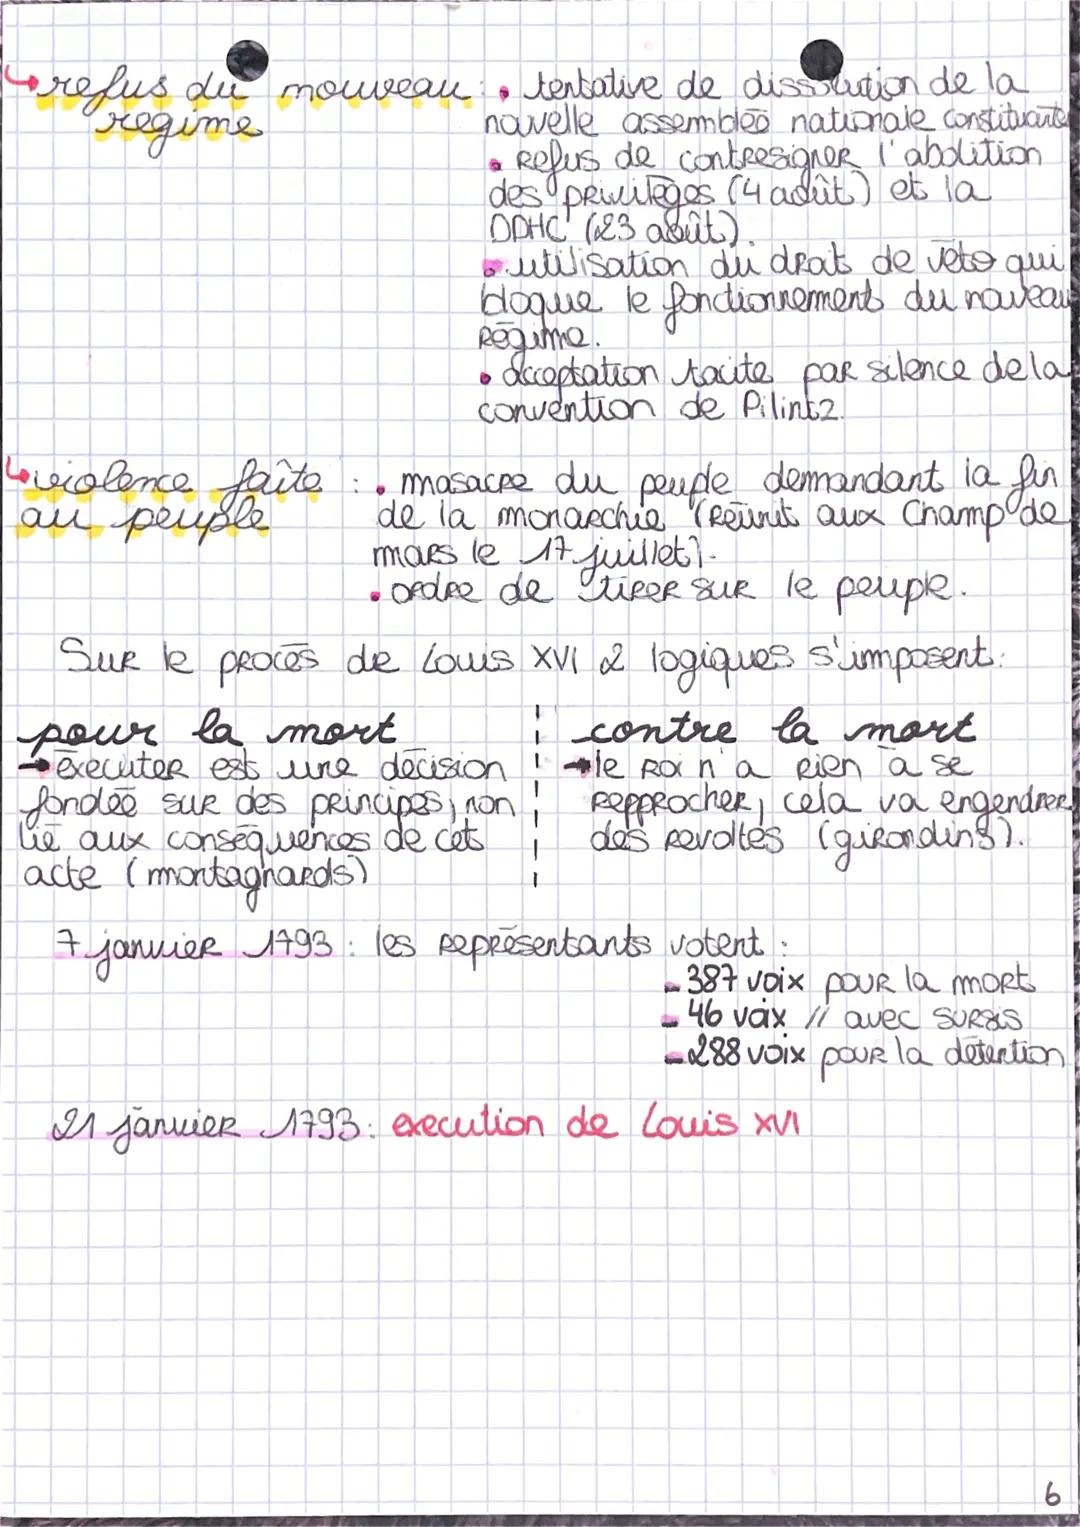 ↳refus du nouveau : • tentative de dissolution de la
regime nouvelle assemblée nationale constituante
• Refus de contresigner l'abolition
des privilèges (4 août) et la
DDHC (23 août).
• utilisation du droit de véto qui
bloque le fonctionnement du nouveau
Régime.
• acceptation tacite par silence de la
convention de Pilintz.
↳violence faîte : • masacre du peuple demandant la fin
au peuple de la monarchie (Réunit aux Champ de
mars le 17 juillet).
• ordre de tirer sur le peuple.
Sur le procès de Louis XVI 2 logiques s'imposent :
pour la mort
→ éxecuter est une décision
fondée sur des principes, non
lié aux conséquences de cet
acte (montagnards)
contre la mort
→ le Roi n'a rien à se
repprocher, cela va engendrer
des révoltes (girondins).
7 janvier 1793 : les représentants votent :
- 387 voix pour la mort
- 46 voix // avec sursis
- 288 voix pour la détention
21 janvier 1793 : execution de Louis XVI
6